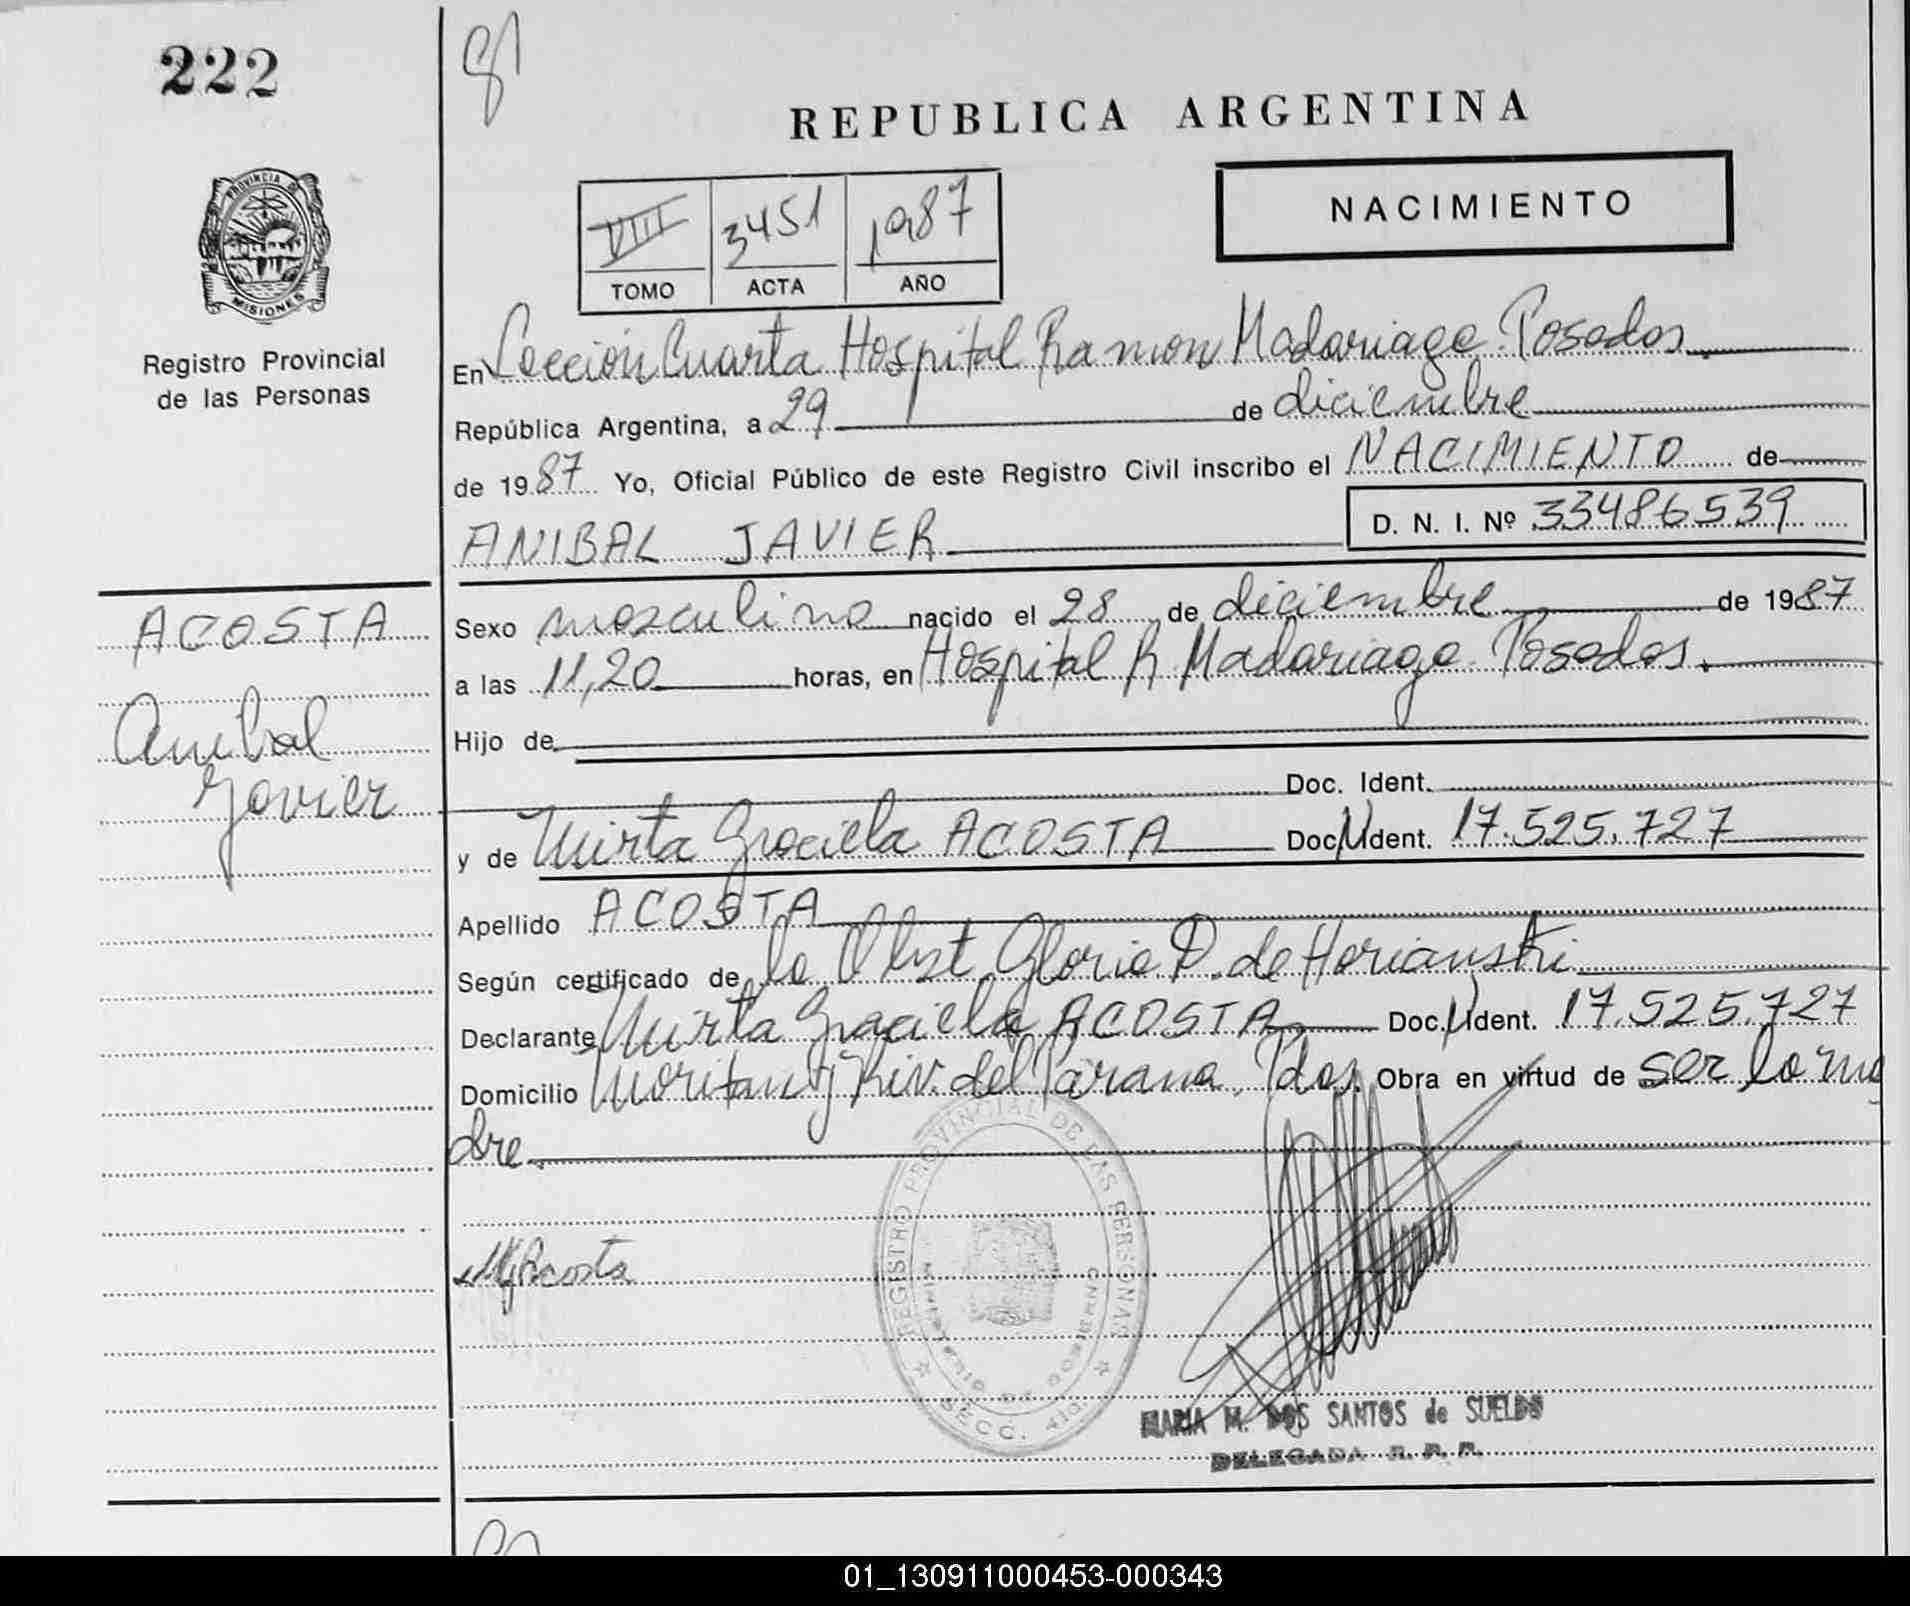 222
REPUBLICA ARGENTINA
PROVINCIA DE
MISIONES
VIII 3451 1987
TOMO ACTA AÑO
NACIMIENTO
Registro Provincial
de las Personas
En Sección Cuarta Hospital Ramon Madariaga. Posadas
República Argentina, a 29 de diciembre
de 1987 Yo, Oficial Público de este Registro Civil inscribo el NACIMIENTO de
ANIBAL JAVIER D. N. I. Nº 33486539
ACOSTA
Anibal
Javier
Sexo masculino nacido el 28 de diciembre de 1987
a las 11,20 horas, en Hospital R Madariaga. Posadas.
Hijo de
Doc. Ident.
y de Mirta Graciela ACOSTA Doc. Ident. 17.525.727
Apellido ACOSTA
Según certificado de la Obst. Gloria D. de Horianski
Declarante Mirta Graciela ACOSTA Doc. Ident. 17.525.727
Domicilio y Riv. del Parana, Pdas. Obra en virtud de ser la ma
dre
MGAcosta
REGISTRO PROVINCIAL DE LAS PERSONAS
MINISTERIO DE GOBIERNO
SECC. 4ta.
MARIA M. DOS SANTOS de SUELDO
DELEGADA R. P. P.
01_130911000453-000343